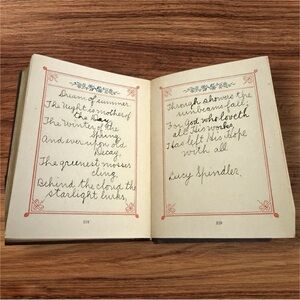 Dream of summer.
The Night is mother of
the Day,
The Winter of the
Spring,
And ever upon old
Decay,
The greenest mosses
cling,
Behind the cloud the
starlight lurks,
Through showers the
sunbeams fall;
For God, who loveth
all His works,
Has left His Hope
with all
Lucy Spindler.